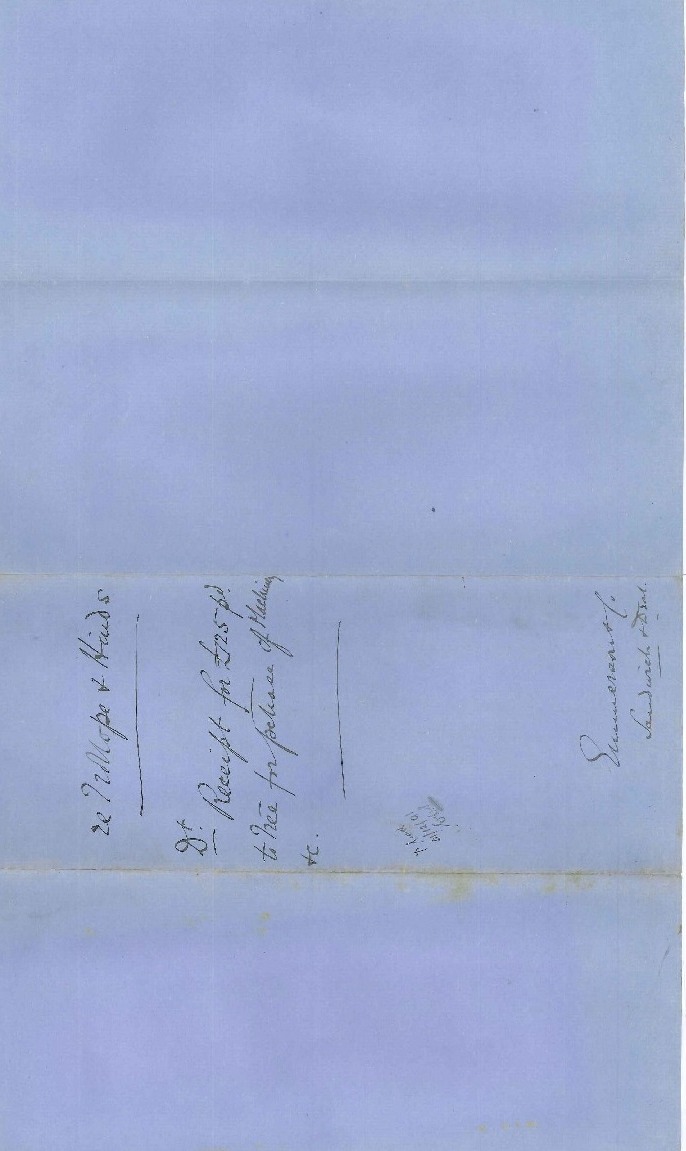 re Trollope & Hinds
Dt. Receipt for £125 pd.
to Nee for pchase of Meeting
&c.
Emmerson & Co.
Sandwich & Deal.